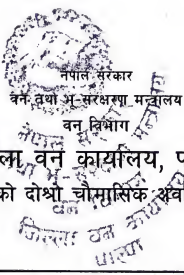 नेपाल सरकार
वन तथा भू-संरक्षण मन्त्रालय
वन विभाग
ला वन कार्यालय, प
को दोश्रो चौमासिक अव
जिल्ला वन कार्यालय
पाल्पा